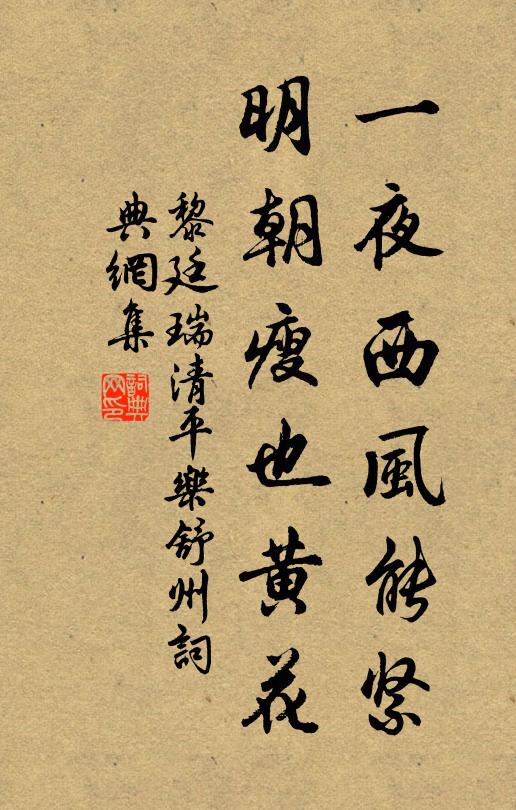 一夜西風能緊
明朝瘦也黃花
黎廷瑞清平樂舒州詞
典網集
詞典網印